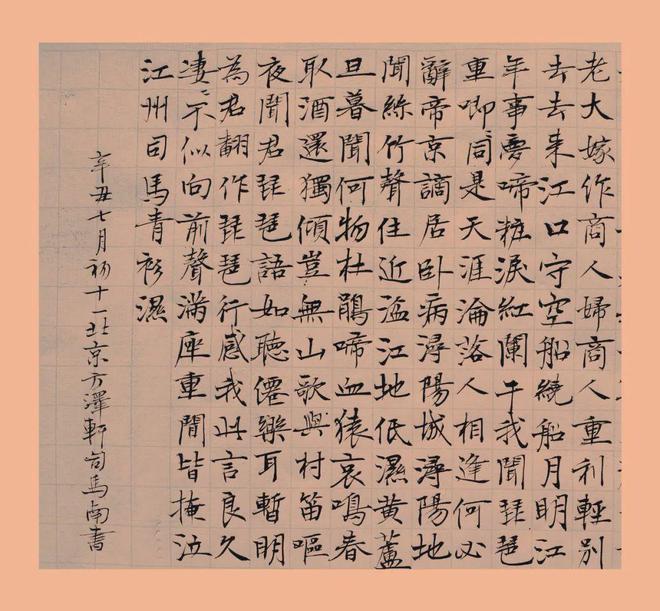 老大嫁作商人婦商人重利輕別
去去来江口守空船繞船月明江
年事夢啼粧淚紅闌干我聞琵琶
重唧〻同是天涯淪落人相逢何必
辭帝京謫居卧病潯陽城潯陽地
聞絲竹聲住近湓江地低濕黄蘆
旦暮聞何物杜鵑啼血猿哀鳴春
取酒還獨傾豈無山歌與村笛嘔
夜聞君琵琶語如聽僊樂耳暫明
為君翻作琵琶行感我此言良久
凄〻不似向前聲滿座重聞皆掩泣
江州司馬青衫濕
辛丑七月初十一北京方澤軒司馬南書